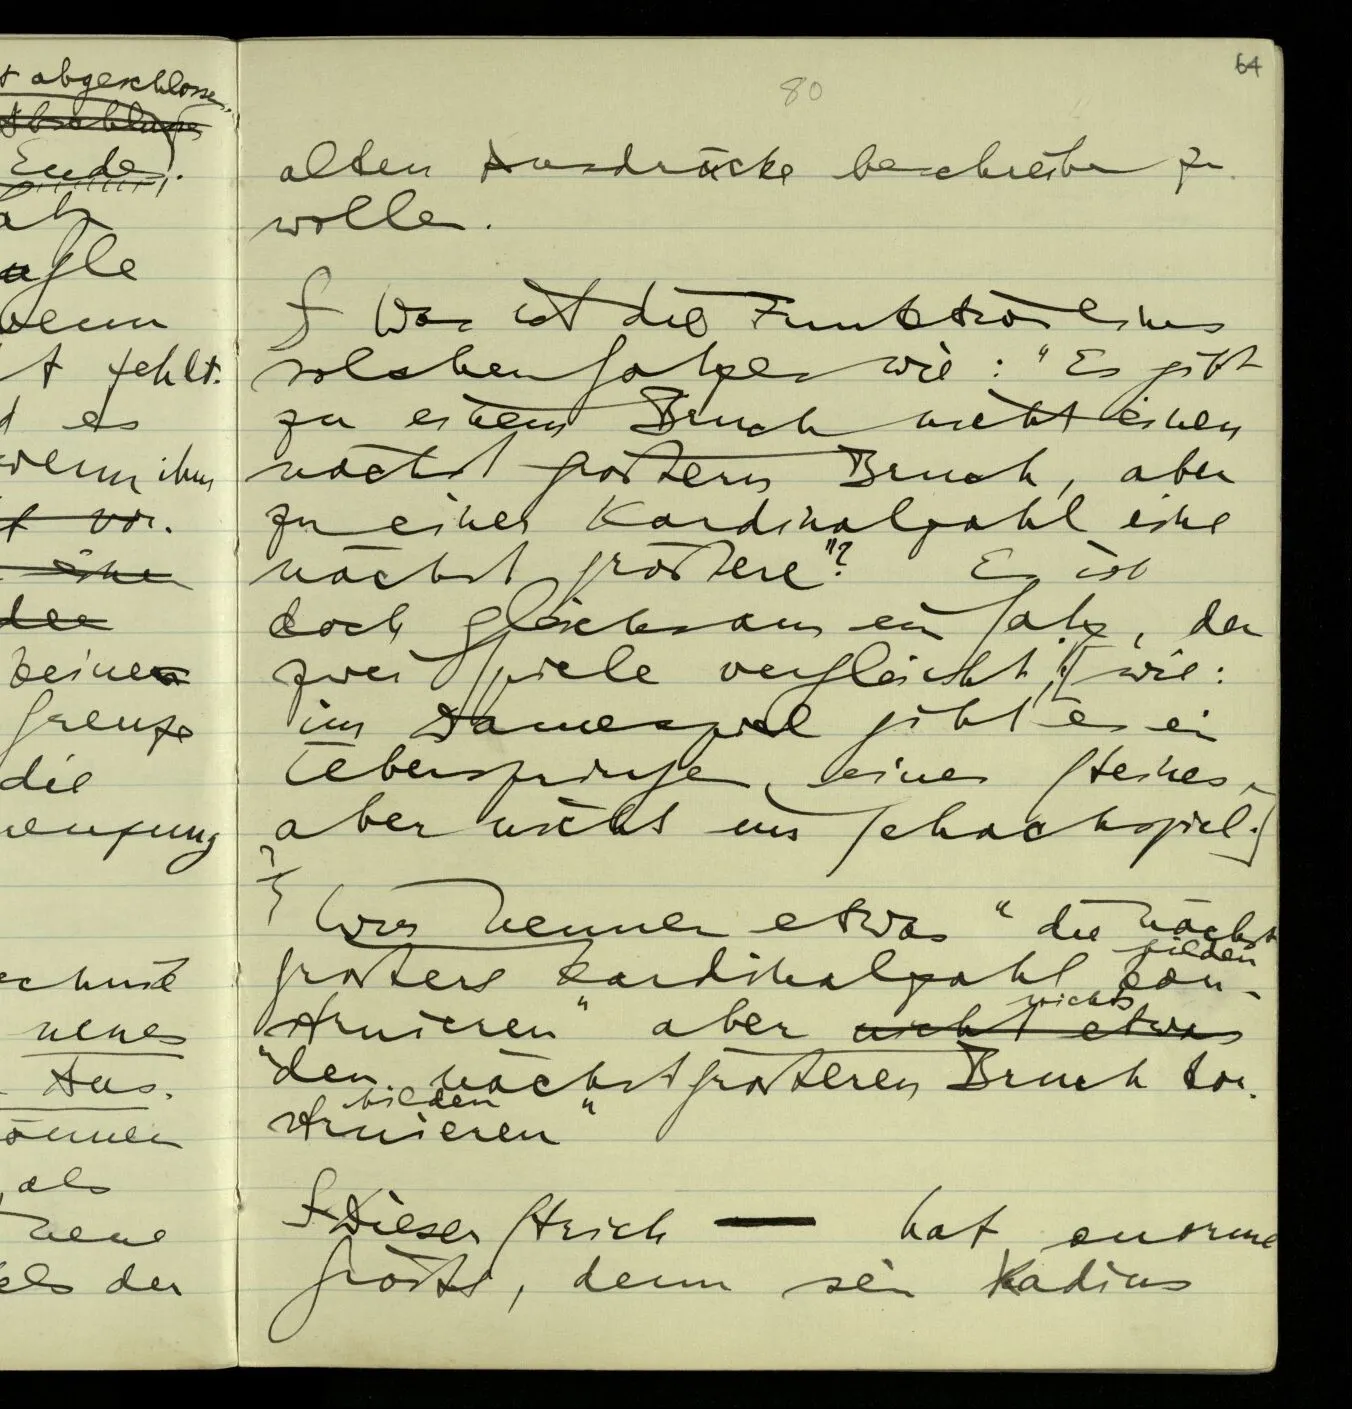 t abgeschlossen.
Abschluß
Ende.
fehlt.
d es
wenn ihm
t vor.
eine
den
keinen
Grenze
die
neues
Aus-
können
, als
neue
der
64
80
alten Ausdrücke beschreiben zu
wollen.
∫ Was ist die Funktion eines
solchen Satzes wie: "Es gibt
zu einem Bruch nicht einen
nächst größeren Bruch, aber
zu einer Kardinalzahl eine
nächst größere"? Es ist
doch gleichsam ein Satz, der
zwei Spiele vergleicht. [wie:
im Damespiel gibt es ein
Ueberspringen eines Steines,
aber nicht im Schachspiel.]
? ∫ Wir nennen etwas "die nächst
bilden
größere Kardinalzahl kon-
nichts
struieren" aber nicht etwas
"den nächstgrößeren Bruch kon-
bilden
struieren"
∫ Dieser Strich — hat enorme
Größe, denn sein Radius